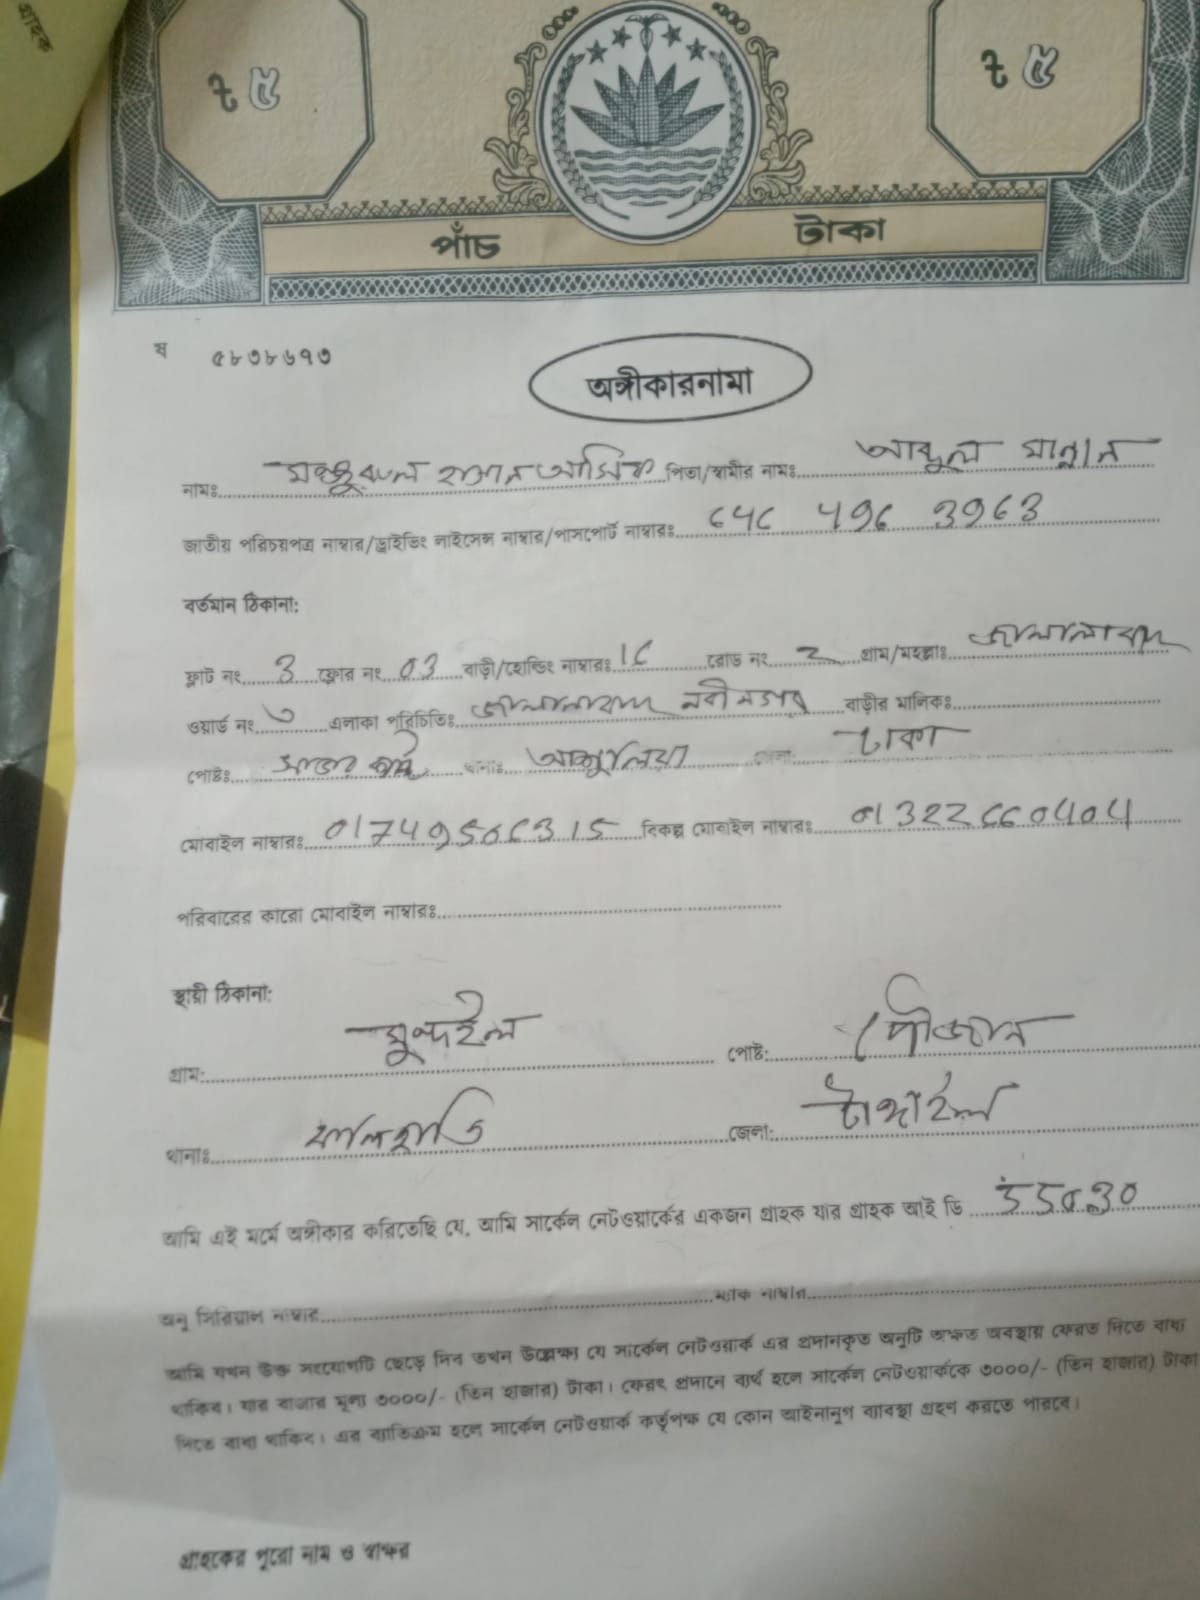 গ্রাহক
৳ ৫ ৳ ৫
পাঁচ টাকা
ষ ৫৮৩৮৬৭৩
অঙ্গীকারনামা
নামঃ হাসান আসিক পিতা/স্বামীর নামঃ আব্দুল মান্নান
জাতীয় পরিচয়পত্র নাম্বার/ড্রাইভিং লাইসেন্স নাম্বার/পাসপোর্ট নাম্বারঃ
বর্তমান ঠিকানা:
ফ্লাট নং 3 ফ্লোর নং 03 বাড়ী/হোল্ডিং নাম্বারঃ রোড নং 2 গ্রাম/মহল্লাঃ জালালাবাদ
ওয়ার্ড নং ৩ এলাকা পরিচিতিঃ জালালাবাদ নবীনগর বাড়ীর মালিকঃ
পোষ্টঃ সাভার থানাঃ আশুলিয়া জেলা: ঢাকা
মোবাইল নাম্বারঃ বিকল্প মোবাইল নাম্বারঃ
পরিবারের কারো মোবাইল নাম্বারঃ
স্থায়ী ঠিকানা:
গ্রাম: পোষ্ট: পৌজান
থানাঃ কালিহাতি জেলা: টাঙ্গাইল
আমি এই মর্মে অঙ্গীকার করিতেছি যে, আমি সার্কেল নেটওয়ার্কের একজন গ্রাহক যার গ্রাহক আই ডি
অনু সিরিয়াল নাম্বার ম্যাক নাম্বার
আমি যখন উক্ত সংযোগটি ছেড়ে দিব তখন উল্লেক্ষ্য যে সার্কেল নেটওয়ার্ক এর প্রদানকৃত অনুটি অক্ষত অবস্থায় ফেরত দিতে বাধ্য
থাকিব। যার বাজার মূল্য ৩০০০/- (তিন হাজার) টাকা। ফেরৎ প্রদানে ব্যর্থ হলে সার্কেল নেটওয়ার্ককে ৩০০০/- (তিন হাজার) টাকা
দিতে বাধ্য থাকিব। এর ব্যতিক্রম হলে সার্কেল নেটওয়ার্ক কর্তৃপক্ষ যে কোন আইনানুগ ব্যাবস্থা গ্রহণ করতে পারবে।
গ্রাহকের পুরো নাম ও স্বাক্ষর